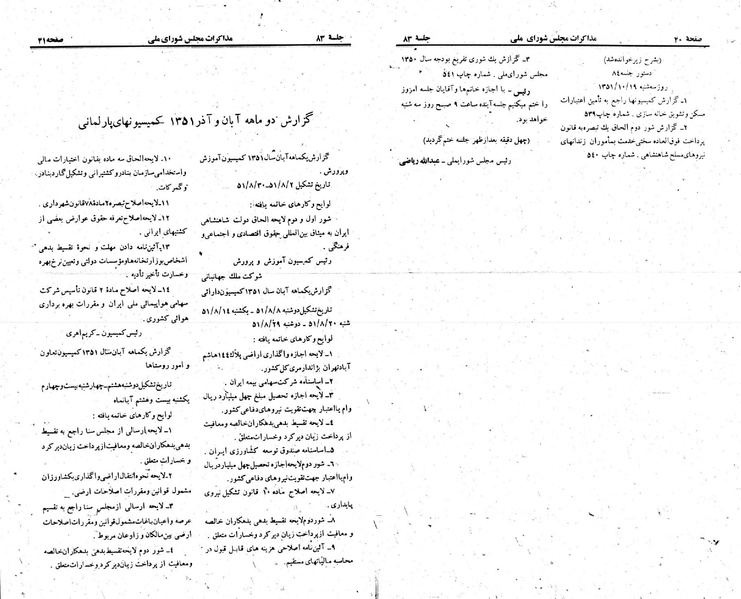 صفحهٔ ۲۰
مذاکرات مجلس شورای ملی
جلسهٔ ۸۳
(بشرح زیر خوانده شد)
دستور جلسه ۸۴
روز سه شنبه ۱۳۵۱/۱۰/۱۹
۱ـ گزارش کمیسیونها راجع به تأمین اعتبارات
مسکن و تشویق خانه سازی . شماره چاپ ۵۳۹
۲ـ گزارش شور دوم الحاق یک تبصره به قانون
پرداخت فوق العاده سختی خدمت بمأموران زندانهای
نیروهای مسلح شاهنشاهی . شماره چاپ ۵۴۰
۳ـ گزارش یک شوری تفریغ بودجه سال ۱۳۵۰
مجلس شورای ملی . شماره چاپ ۵۴۱
رئیس ـ با اجازه خانمها و آقایان جلسه امروز
را ختم میکنیم جلسه آینده ساعت ۹ صبح روز سه شنبه
خواهد بود.
(چهل دقیقه بعد از ظهر جلسه ختم گردید)
رئیس مجلس شورایملی ـ عبدالله ریاضی
جلسهٔ ۸۳
مذاکرات مجلس شورای ملی
صفحه ۲۱
گزارش دو ماهه آبان و آذر ۱۳۵۱ کمیسیونهای پارلمانی
گزارش یکماهه آبان سال ۱۳۵۱ کمیسیون آموزش
و پرورش .
تاریخ تشکیل ۵۱/۸/۲ـ ۵۱/۸/۳۰
لوایح و کارهای خاتمه یافته :
شور اول و دوم لایحه الحاق دولت شاهنشاهی
ایران به میثاق بین المللی حقوق اقتصادی و اجتماعی و
فرهنگی .
رئیس کمیسیون آموزش و پرورش
شوکت ملک جهانبانی
گزارش یکماهه آبان سال ۱۳۵۱ کمیسیون دارائی
تاریخ تشکیل دوشنبه ۵۱/۸/۸ ـ یکشنبه ۵۱/۸/۱۴
شنبه ۵۱/۸/۲۰ ـ دوشنبه ۵۱/۸/۲۹
لوایح و کارهای خاتمه یافته :
۱ـ لایحه اجازه واگذاری اراضی پلاک ۱۴۴ هاشم
آباد تهران بژاندارمری کل کشور.
۲ـ اساسنامه شرکت سهامی بیمه ایران .
۳ـ لایحه اجازه تحصیل مبلغ چهل میلیارد ریال
وام یا اعتبار جهت تقویت نیروهای دفاعی کشور.
۴ـ لایحه تقسیط بدهی بدهکاران خالصه و معافیت
از پرداخت زیان دیر کرد و خسارات متعلق .
۵ـ اساسنامه صندوق توسعه کشاورزی ایران .
۶ـ شور دوم لایحه اجازه تحصیل چهل میلیارد ریال
وام یا اعتبار جهت تقویت نیروهای دفاعی کشور.
۷ـ لایحه اصلاح ماده ۲۰ قانون تشکیل نیروی
پایداری .
۸ـ شور دوم لایحه تقسیط بدهی بدهکاران خالصه
و معافیت از پرداخت زیان دیر کرد و خسارات متعلق .
۹ـ آئین نامه اصلاحی هزینه های قابل قبول در
محاسبه مالیاتهای مستقیم .
۱۰ـ لایحه الحاق سه ماده بقانون اختیارات مالی
و استخدامی سازمان بنادر و کشتیرانی و تشکیل گارد بنادر،
و گمرکات.
۱۱ـ لایحه اصلاح تبصره ۲ ماده ۷۸ قانون شهرداری .
۱۲ـ لایحه اصلاح تعرفه حقوق عوارض بعضی از
کشتیهای ایرانی .
۱۳ـ آئین نامه دادن مهلت و نحوهٔ تقسیط بدهی
اشخاص بوزارتخانه ها و مؤسسات دولتی و تعیین نرخ بهره
و خسارت تأخیر تأدیه .
۱۴ـ لایحه اصلاح مادهٔ ۲ قانون تأسیس شرکت
سهامی هواپیمائی ملی ایران و مقررات بهره برداری
هوائی کشوری.
رئیس کمیسیون ـ کریم اهری
گزارش یکماهه آبان سال ۱۳۵۱ کمیسیون تعاون
و امور روستاها
تاریخ تشکیل دوشنبه هشتم ـ چهارشنبه بیست و چهارم
یکشنبه بیست وهشتم آبانماه
لوایح و کارهای خاتمه یافته :
۱ـ لایحه ارسالی از مجلس سنا راجع به تقسیط
بدهی بدهکاران خالصه و معافیت از پرداخت زیان دیر کرد
و خسارات متعلق .
۲ـ لایحه نحوه انتقال اراضی واگذاری بکشاورزان
مشمول قوانین و مقررات اصلاحات ارضی .
۳ـ لایحه ارسالی از مجلس سنا راجع به تقسیم
عرصه و اعیان باغات مشمول قوانین و مقررات اصلاحات
ارضی بین مالکان و زارعان مربوط .
۴ـ شور دوم لایحه تقسیط بدهی بدهکاران خالصه
و معافیت از پرداخت زیان دیر کرد و خسارات متعلق .